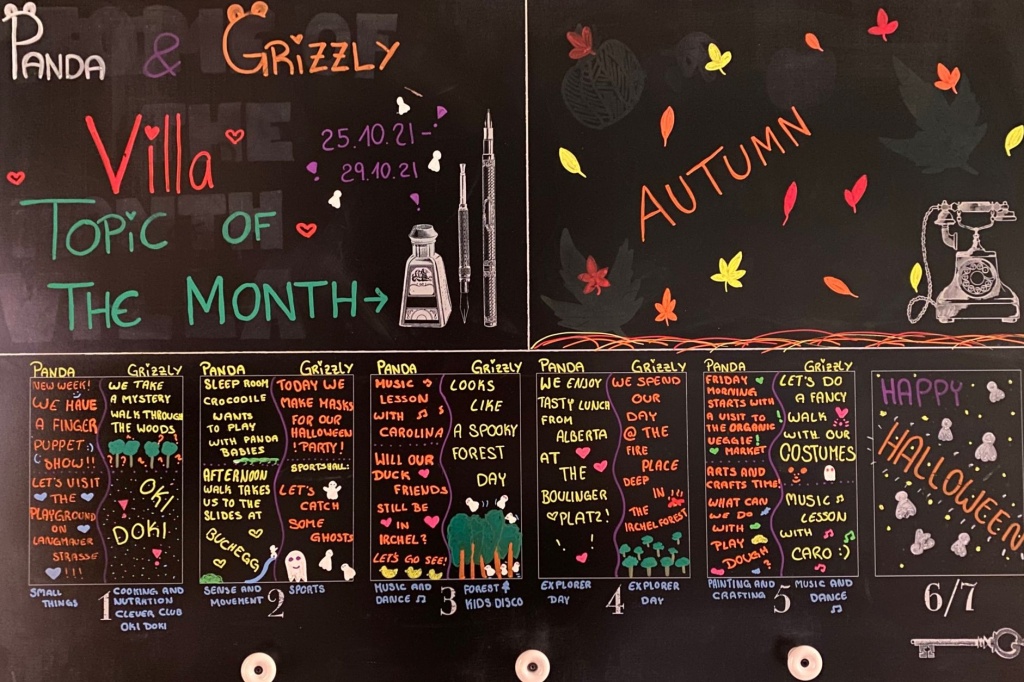 PANDA & GRIZZLY
Villa
25.10.21-
29.10.21
TOPIC OF
THE MONTH→
AUTUMN
PANDA
NEW WEEK!
WE HAVE
A FINGER
PUPPET
SHOW!!
LET'S VISIT
THE
PLAYGROUND
ON
LANGMAUER
STRASSE
!!!
SMALL
THINGS
GRIZZLY
WE TAKE
A MYSTERY
WALK THROUGH
THE WOODS
OKI
DOKI
COOKING AND
NUTRITION
CLEVER CLUB
OKI DOKI
1
PANDA
SLEEP ROOM
CROCODILE
WANTS
TO PLAY
WITH PANDA
BABIES
AFTERNOON
WALK TAKES
US TO THE
SLIDES AT
BUCHEGG
SENSE AND
MOVEMENT
GRIZZLY
TODAY WE
MAKE MASKS
FOR OUR
HALLOWEEN
PARTY!
SPORTSHALL:
LET'S
CATCH
SOME
GHOSTS
SPORTS
2
PANDA
MUSIC
LESSON
WITH
CAROLINA
WILL OUR
DUCK
FRIENDS
STILL BE
IN
IRCHEL?
LET'S GO SEE!
MUSIC AND
DANCE ♫
GRIZZLY
LOOKS
LIKE
A SPOOKY
FOREST
DAY
FOREST &
KIDS DISCO
3
PANDA
WE ENJOY
TASTY LUNCH
FROM
ALBERTA
AT
THE
BOULINGER
PLATZ!
!
EXPLORER
DAY
GRIZZLY
WE SPEND
OUR
DAY
@ THE
FIRE
PLACE
DEEP
IN
THE
IRCHELFOREST
EXPLORER
DAY
4
PANDA
FRIDAY
MORNING
STARTS WITH
A VISIT TO
THE ORGANIC
VEGGIE
MARKET
ARTS AND
CRAFTS TIME!
WHAT CAN
WE DO
WITH
PLAY
DOUGH?
PAINTING AND
CRAFTING
GRIZZLY
LET'S DO
A FANCY
WALK
WITH OUR
COSTUMES
MUSIC ♫
LESSON
WITH
CARO :)
MUSIC AND
DANCE
♫
5
HAPPY
HALLOWEEN
6/7